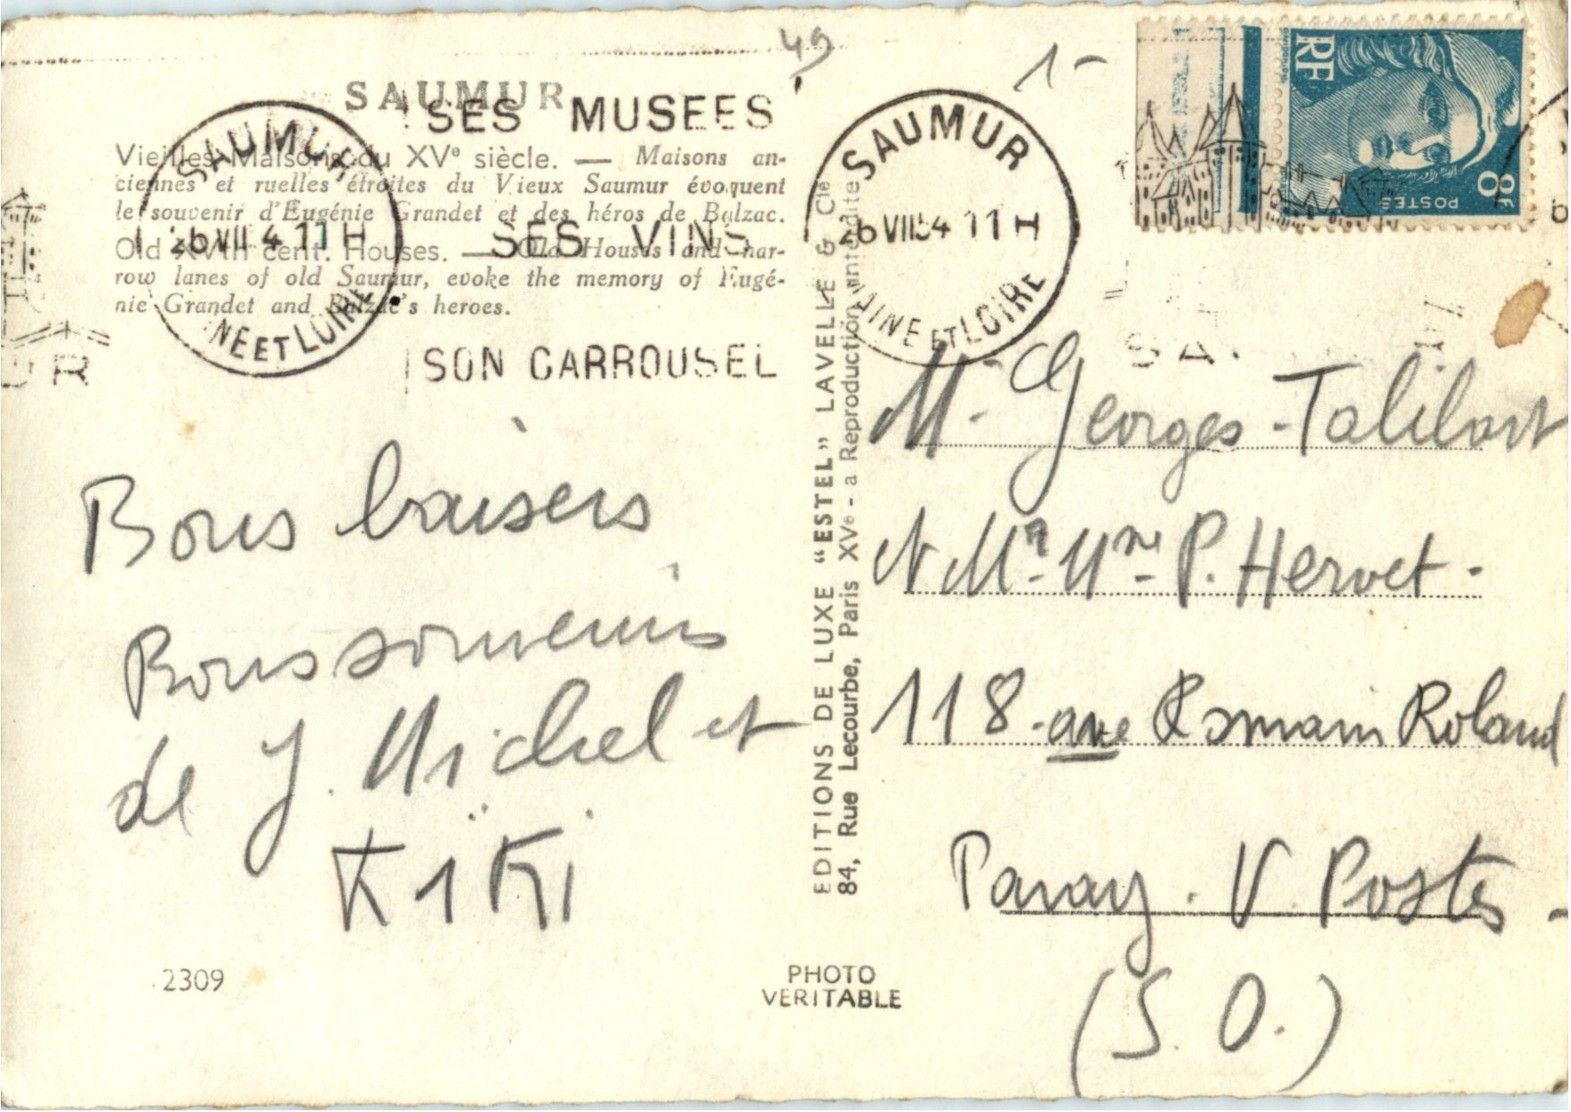 49
1-
SAUMUR
SES MUSEES
SES VINS
SON CARROUSEL
SAUMUR
6 VII 4 11 H
NE ET LOIRE
SAUMUR
6 VII 54 11 H
INE ET LOIRE
RF
POSTES
8F
Vieilles Maisons du XVe siècle. — Maisons an-
ciennes et ruelles étroites du Vieux Saumur évoquent
le souvenir d'Eugénie Grandet et des héros de Balzac.
Old XVth cent. Houses. — Old Houses and nar-
row lanes of old Saumur, evoke the memory of Eugé-
nie Grandet and Balzac's heroes.
Bons baisers
Bons souvenirs
de J. Michel et
KiKi
2309
EDITIONS DE LUXE "ESTEL" LAVELLE & Cie
84, Rue Lecourbe, Paris XVe - a Reproduction interdite
PHOTO
VERITABLE
M. Georges Talibart
et Mr. Mme. P. Hervet.
118 ave Romain Roland
Paray. V. Postes.
(S. O.)